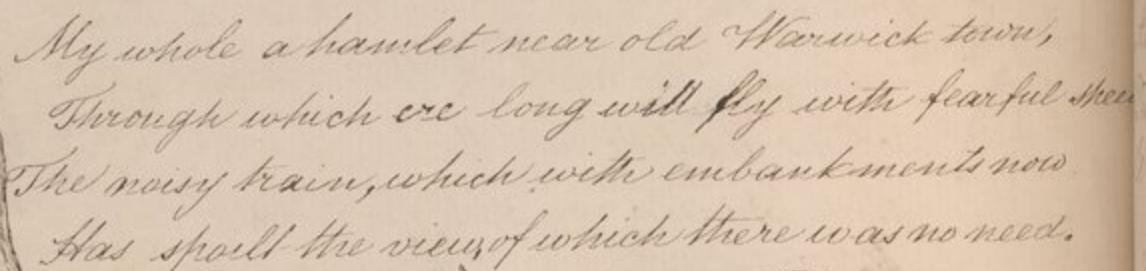 My whole a hamlet near old Warwick town,
Through which ere long will fly with fearful
The noisy train, which with embankments now
Has spoilt the view, of which there was no need.